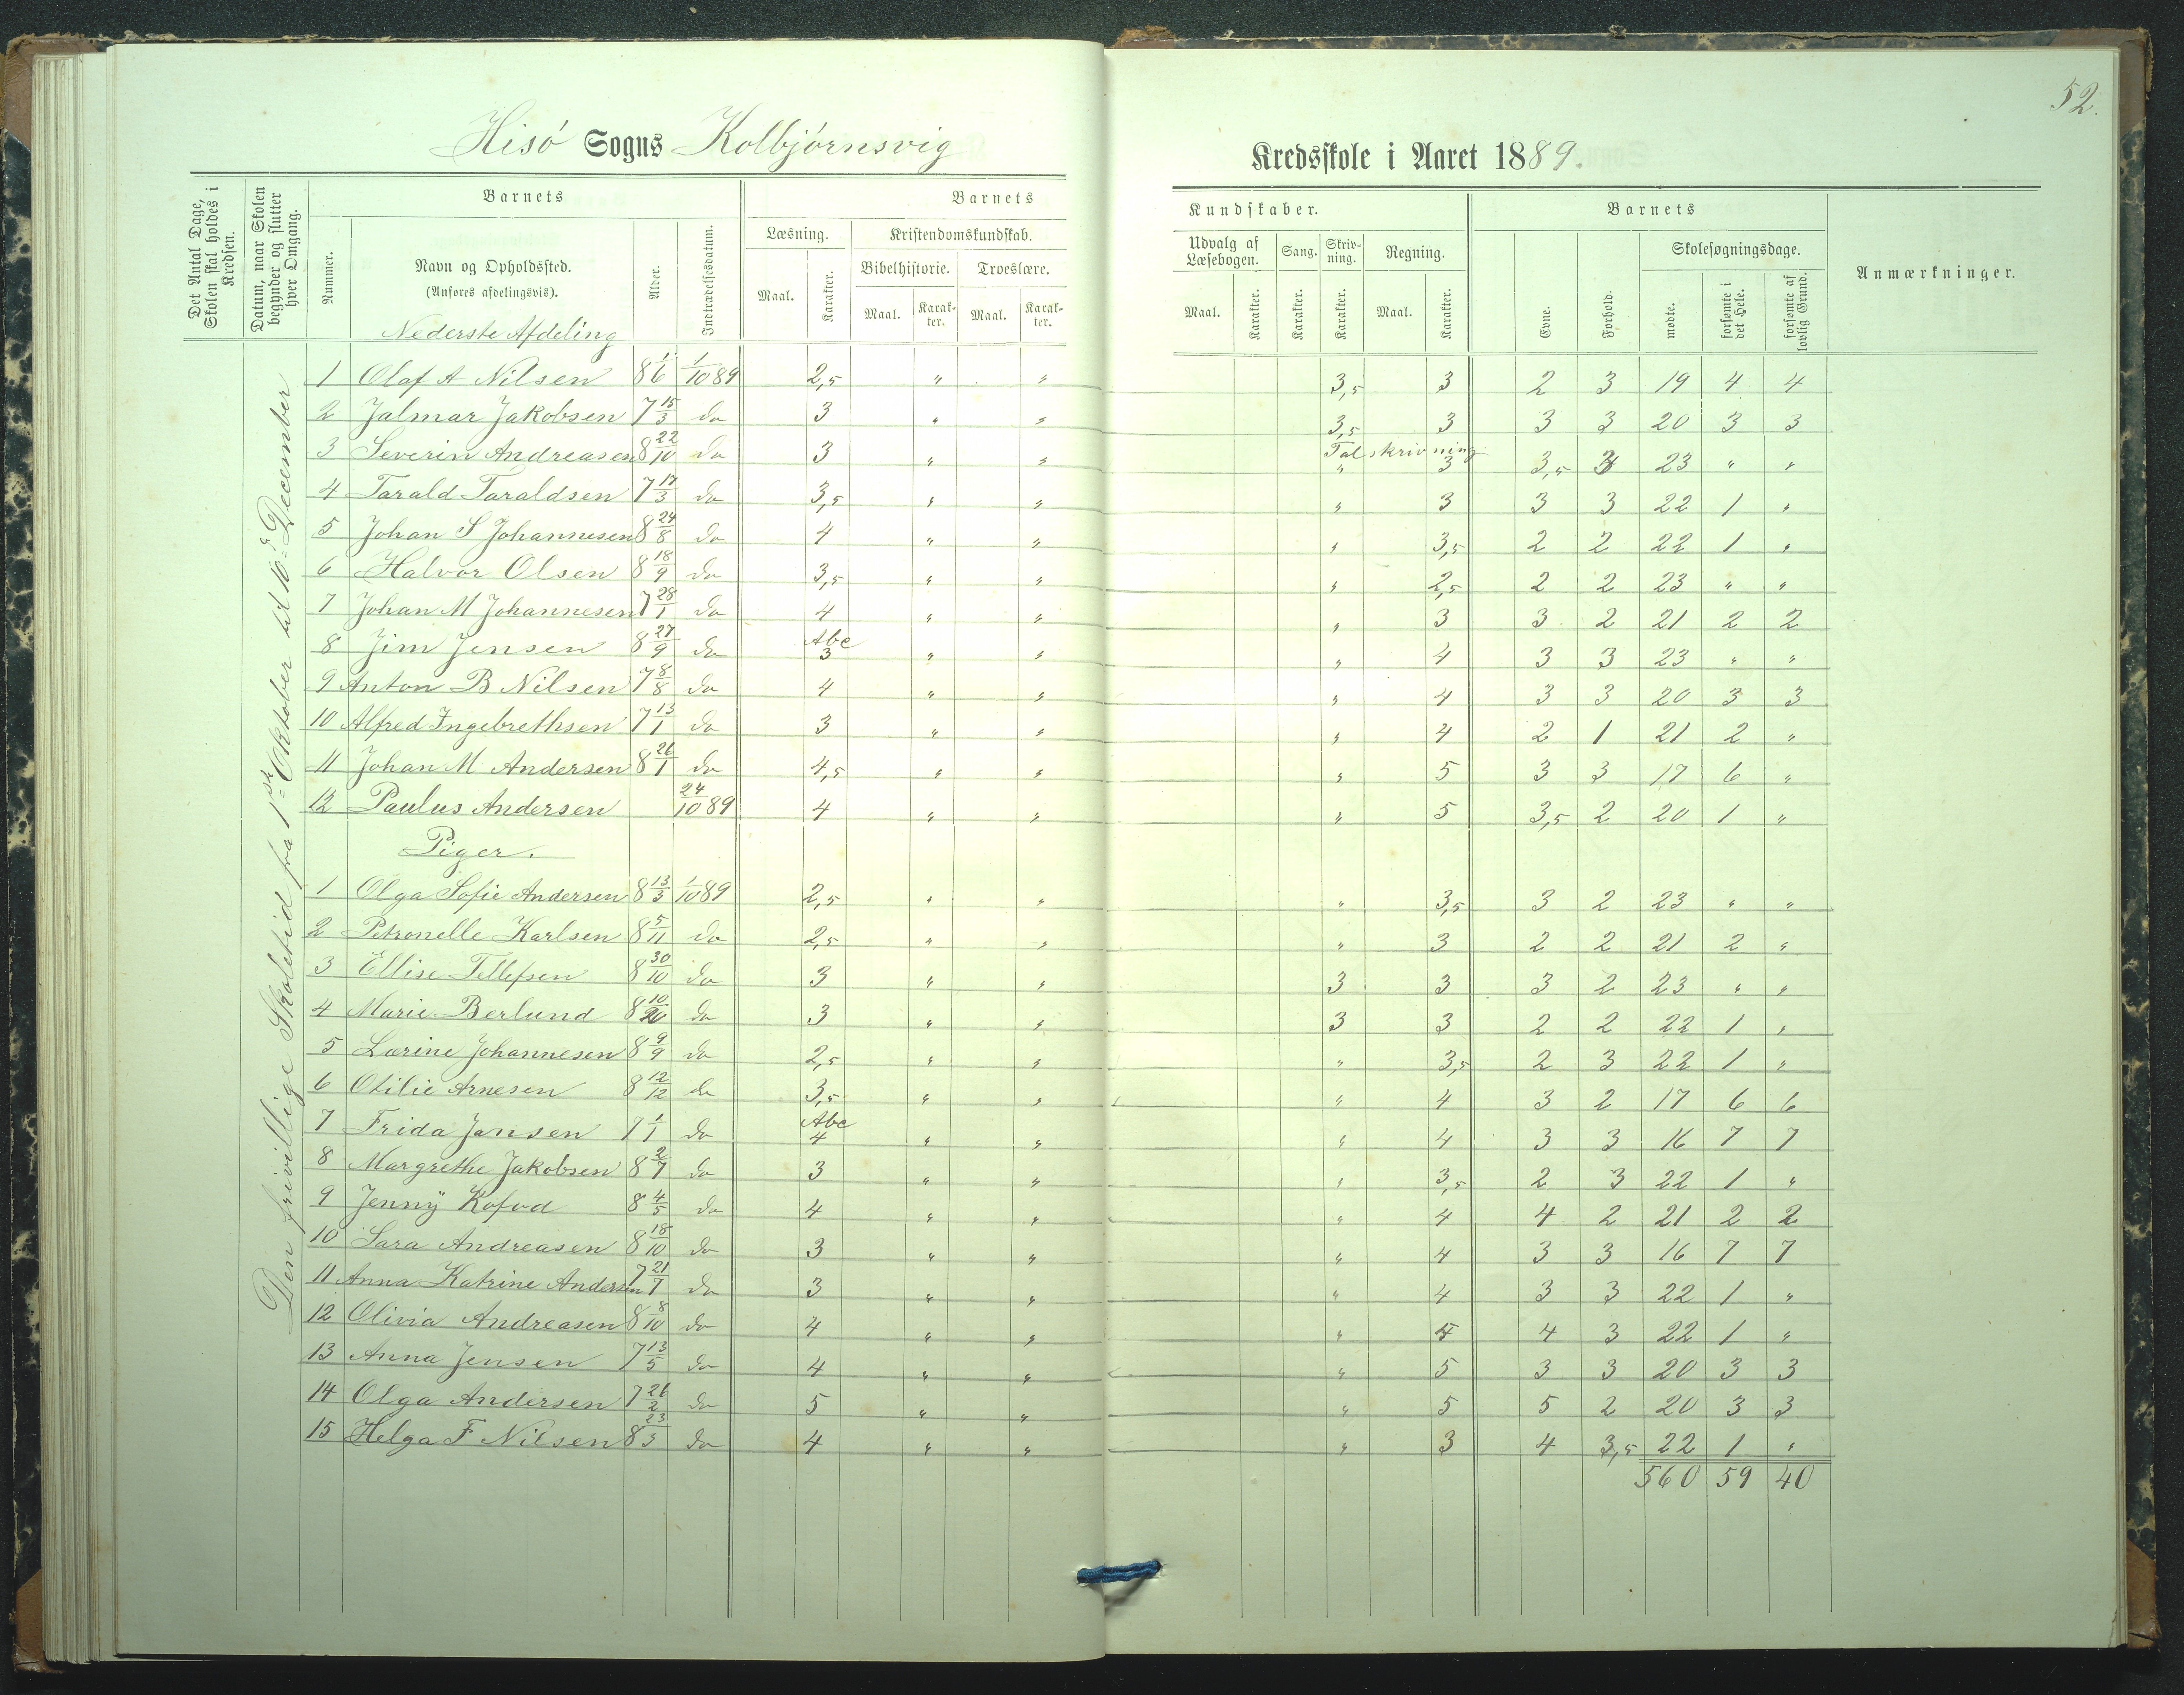 52.
Hisö Sogns Kolbjörnsvig Kredsskole i Aaret 1889.
Det Antal Dage, Skolen skal holdes i Kredsen.
Datum, naar Skolen begynder og slutter hver Omgang.
Barnets
Nummer.
Navn og Opholdssted.
(Anføres afdelingsvis).
Alder.
Indtrædelsesdatum.
Barnets Kundskaber.
Læsning.
Maal. Karakter.
Kristendomskundskab.
Bibelhistorie. Troeslære.
Maal. Karakter. Maal. Karakter.
Udvalg af Læsebogen. Sang. Skrivning. Regning.
Maal. Karakter. Karakter. Karakter. Maal. Karakter.
Barnets
Evne. Forhold.
Skolesøgningsdage.
mødte. forsømte i det Hele. forsømte af lovlig Grund.
Anmærkninger.
Den frivillige Skoletid fra 1ste Oktober til 16de December
Nederste Afdeling
1 Olaf A Nilsen 8 1/6 1/10 89 2,5 " " 3,5 3 2 3 19 4 4
2 Jalmar Jakobsen 7 15/3 do 3 " " 3,5 3 3 3 20 3 3
Talskrivning
3 Severin Andreasen 8 22/10 do 3 " " " 3 3,5 3 23 " "
4 Tarald Taraldsen 7 17/3 do 3,5 " " " 3 3 3 22 1 "
5 Johan S Johannesen 8 24/8 do 4 " " " 3,5 2 2 22 1 "
6 Halvor Olsen 8 18/9 do 3,5 " " " 2,5 2 2 23 " "
7 Johan M Johannesen 7 28/1 do 4 " " " 3 3 2 21 2 2
8 Jim Jensen 8 27/9 do Abc 3 " " " 4 3 3 23 " "
9 Anton B Nilsen 7 8/8 do 4 " " " 4 3 3 20 3 3
10 Alfred Ingebrethsen 7 13/1 do 3 " " " 4 2 1 21 2 "
11 Johan M Andersen 8 26/1 do 4,5 " " " 5 3 3 17 6 "
12 Paulus Andersen 24/10 89 4 " " " 5 3,5 2 20 1 "
Piger.
1 Olga Sofie Andersen 8 13/3 1/10 89 2,5 " " " 3,5 3 2 23 " "
2 Petronelle Karlsen 8 5/11 do 2,5 " " " 3 2 2 21 2 "
3 Ellise Tellefsen 8 30/10 do 3 " " 3 3 3 2 23 " "
4 Marie Berlund 8 10/10 do 3 " " 3 3 2 2 22 1 "
5 Larine Johannesen 8 9/9 do 2,5 " " " 3,5 2 3 22 1 "
6 Otilie Arnesen 8 12/12 do 3,5 " " " 4 3 2 17 6 6
7 Frida Jansen 7 1/1 do Abc 4 " " " 4 3 3 16 7 7
8 Margrethe Jakobsen 8 2/7 do 3 " " " 3,5 2 3 22 1 "
9 Jenny Kofod 8 4/5 do 4 " " " 4 4 2 21 2 2
10 Sara Andreasen 8 18/10 do 3 " " " 4 3 3 16 7 7
11 Anna Katrine Andersen 7 21/7 do 3 " " " 4 3 3 22 1 "
12 Olivia Andreasen 8 8/10 do 4 " " " 4 4 3 22 1 "
13 Anna Jensen 7 13/5 do 4 " " " 5 3 3 20 3 3
14 Olga Andersen 7 26/2 do 5 " " " 5 5 2 20 3 3
15 Helga F Nilsen 8 23/3 do 4 " " " 3 4 3,5 22 1 "
560 59 40